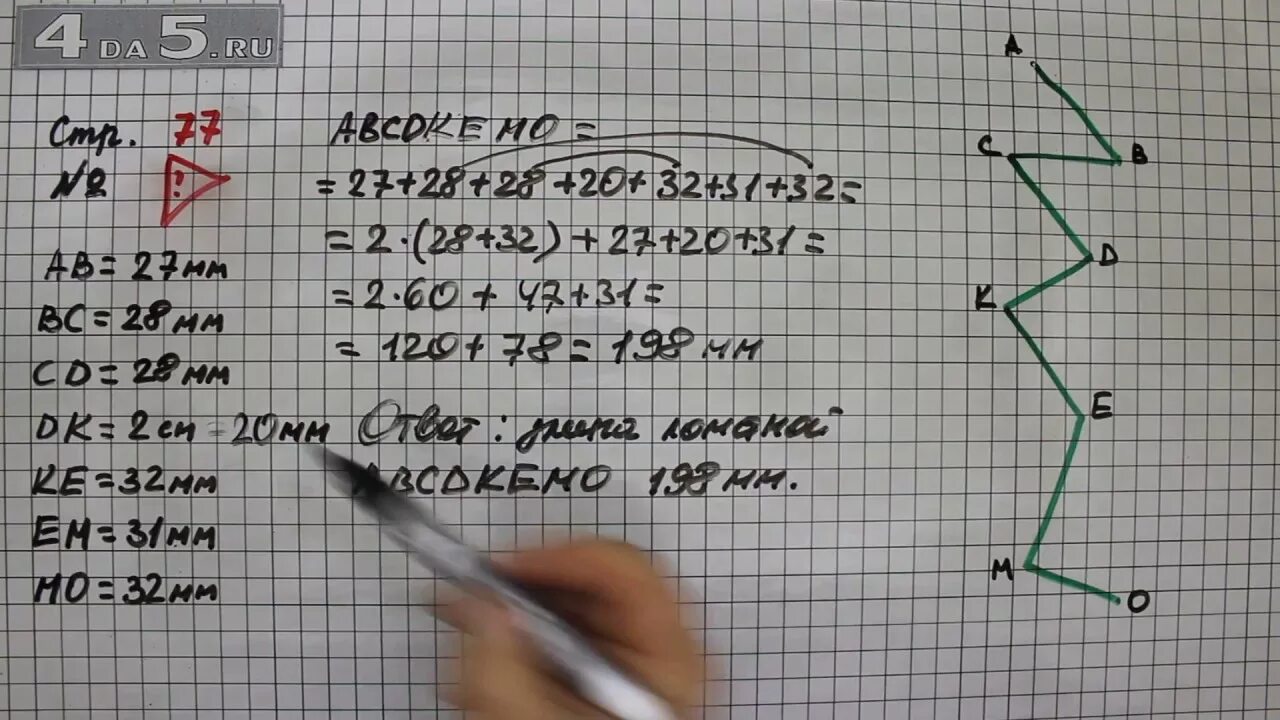 4DA5.RU
Стр. 77
№2 ?
AB = 27мм
BC = 28мм
CD = 28мм
DK = 2см = 20мм
KE = 32мм
EM = 31мм
MO = 32мм
ABCDKEMO =
= 27+28+28+20+32+31+32=
= 2·(28+32) + 27+20+31=
= 2·60 + 47+31=
= 120+ 78= 198мм
Ответ: длина ломаной
ABCDKEMO 198мм.
A
C
B
D
K
E
M
O